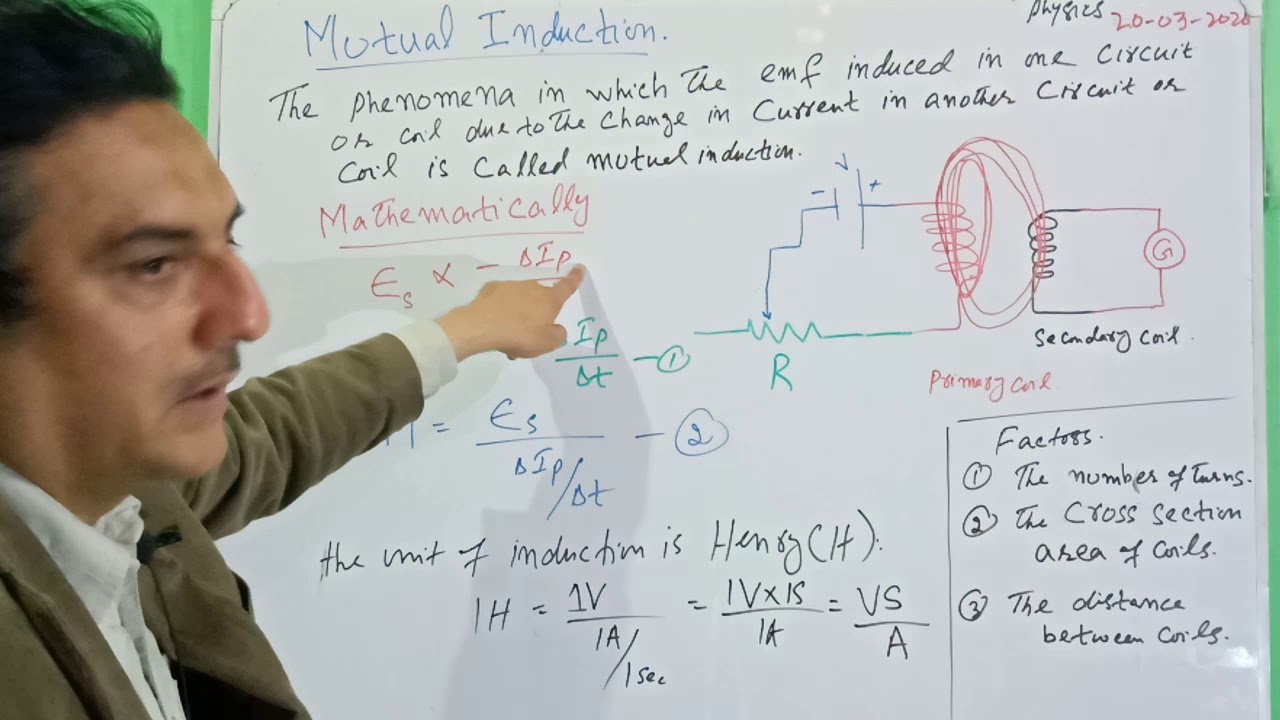 Physics
20-03-2020
Mutual Induction.
The phenomena in which the emf induced in one circuit
or coil due to the change in current in another circuit or
coil is called mutual induction.
Mathematically
ϵs ∝ - ΔIp
Ip
Δt
- ①
= ϵs
ΔIp/Δt
- ②
the unit of induction is Henry (H).
1H = 1V / 1A/1sec = 1V×1S / 1A = VS / A
V
- +
R
G
Secondary coil.
Primary coil
Factors.
① The number of turns.
② The Cross section
area of coils.
③ The distance
between coils.